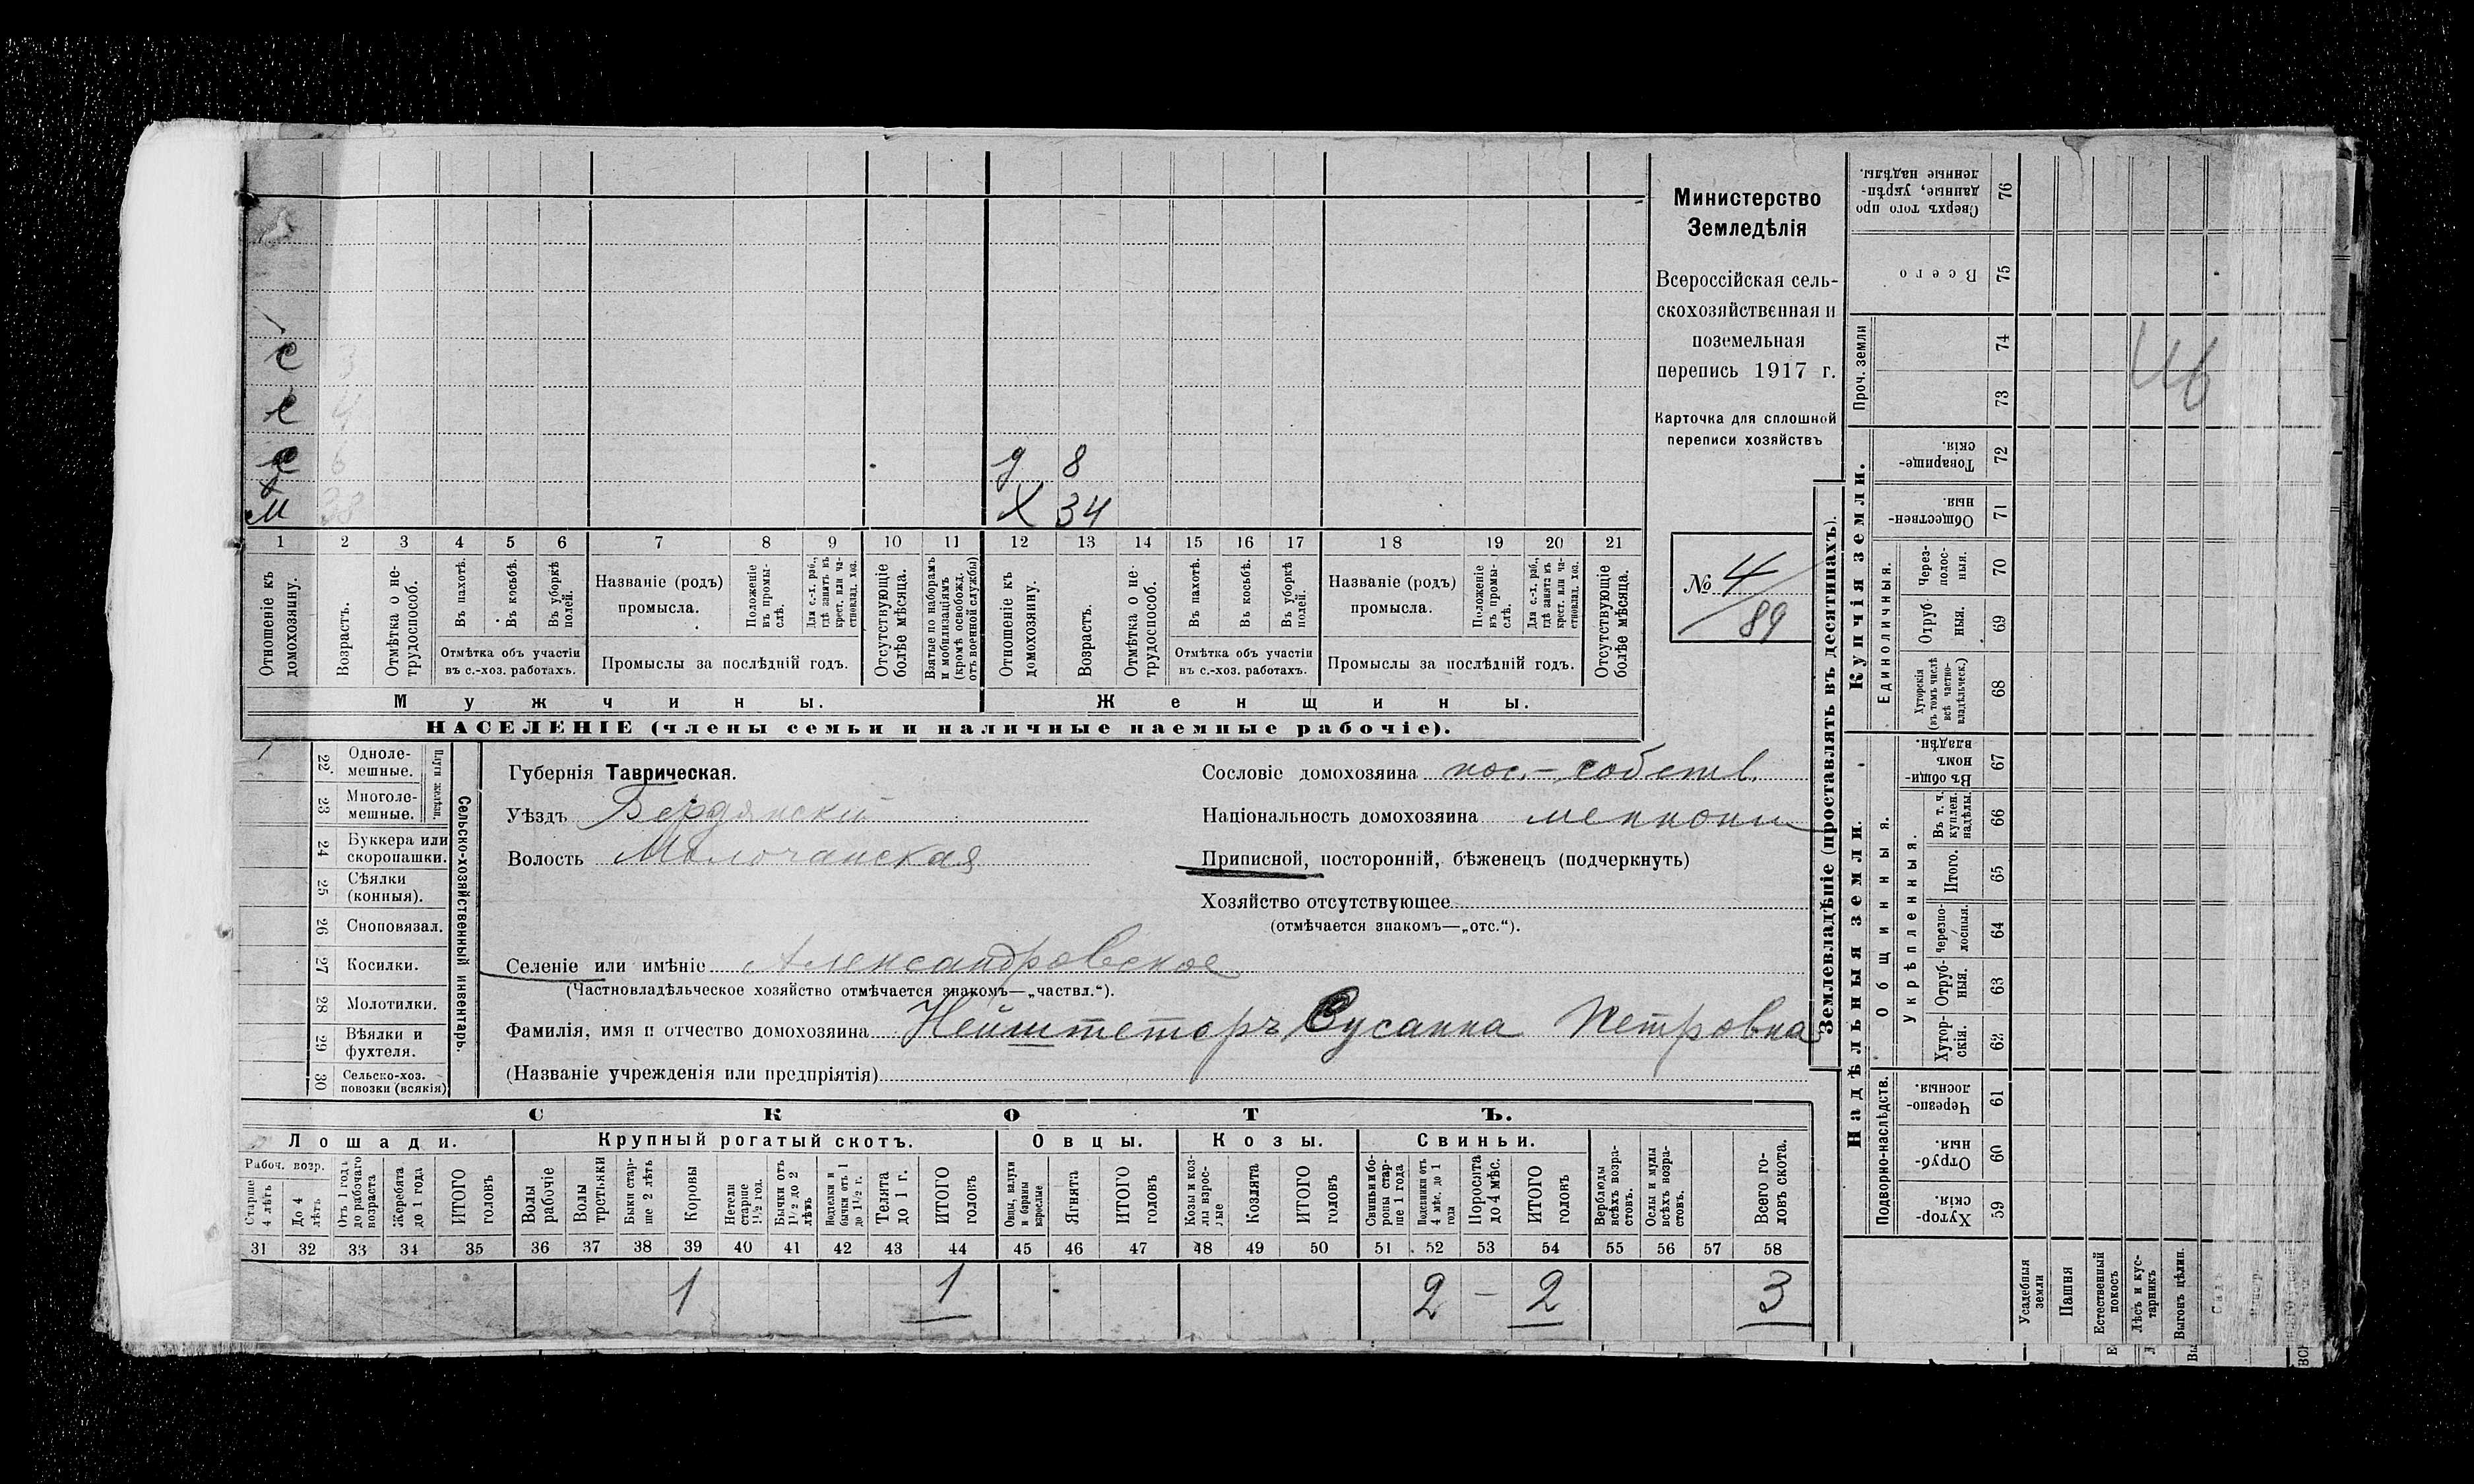 с 3
с 4
с 6
м 38
д 8
Х 34
1 2 3 4 5 6 7 8 9 10 11 12 13 14 15 16 17 18 19 20 21
Отношеніе къ домохозяину.
Возрастъ.
Отмѣтка о не-
трудоспособ.
Въ пахотѣ.
Въ косьбѣ.
Въ уборкѣ
полей.
Отмѣтка объ участіи
въ с.-хоз. работахъ.
Названіе (родъ)
промысла.
Положеніе
въ промы-
слѣ.
Для с.-х. раб.,
гдѣ занятъ въ
крест. или ча-
стновлад. хоз.
Промыслы за послѣдній годъ.
Отсутствующіе
болѣе мѣсяца.
Взятые по наборамъ
и мобилизаціямъ
(кромѣ освобожд.
отъ военной службы)
Отношеніе къ
домохозяину.
Возрастъ.
Отмѣтка о не-
трудоспособ.
Въ пахотѣ.
Въ косьбѣ.
Въ уборкѣ
полей.
Отмѣтка объ участіи
въ с.-хоз. работахъ.
Названіе (родъ)
промысла.
Положеніе
въ промы-
слѣ.
Для с.-х. раб.,
гдѣ занята въ
крест. или ча-
стновлад. хоз.
Промыслы за послѣдній годъ.
Отсутствующіе
болѣе мѣсяца.
Мужчины.
Женщины.
НАСЕЛЕНІЕ (члены семьи и наличные наемные рабочіе).
Министерство
Земледѣлія
Всероссійская сель-
скохозяйственная и
поземельная
перепись 1917 г.
Карточка для сплошной
переписи хозяйствъ
№ 4/89
22 Одноле-
мешные.
23 Многоле-
мешные.
Плуги желѣзн.
24 Буккера или
скоропашки.
25 Сѣялки
(конныя).
26 Сноповязал.
27 Косилки.
28 Молотилки.
29 Вѣялки и
фухтеля.
30 Сельско-хоз.
повозки (всякія)
Сельско-хозяйственный инвентарь.
Губернія Таврическая.
Уѣздъ Бердянскій
Волость Молочанская
Сословіе домохозяина пос.-собств.
Національность домохозяина меннони
Приписной, посторонній, бѣженецъ (подчеркнуть)
Хозяйство отсутствующее
(отмѣчается знакомъ—„отс.“).
Селеніе или имѣніе Александровское
(Частновладѣльческое хозяйство отмѣчается знакомъ—„частвл.“).
Фамилія, имя и отчество домохозяина Нейштетеръ Сусанна Петровна
(Названіе учрежденія или предпріятія)
СКОТЪ.
Лошади. Крупный рогатый скотъ. Овцы. Козы. Свиньи.
Рабоч. возр.
Старше
4 лѣтъ
До 4
лѣтъ
Отъ 1 года
до рабочаго
возраста
Жеребята
до 1 года
ИТОГО
головъ
Волы
рабочіе
Волы
третьяки
Быки стар-
ше 2 лѣтъ
Коровы
Нетели
старше
1½ год.
Бычки отъ
1½ до 2
лѣтъ
Подтелки и
бычки отъ 1
до 1½ г.
Телята
до 1 г.
ИТОГО
головъ
Овцы, валухи
и бараны
взрослые
Ягнята
ИТОГО
головъ
Козы и коз-
лы взрос-
лые
Козлята
ИТОГО
головъ
Свиньи и бо-
ровы стар-
ше 1 года
Подсвинки отъ
4 мѣс. до 1
года
Поросята
до 4 мѣс.
ИТОГО
головъ
Верблюды
всѣхъ возра-
стовъ.
Ослы и мулы
всѣхъ возра-
стовъ.
Всего го-
ловъ скота.
31 32 33 34 35 36 37 38 39 40 41 42 43 44 45 46 47 48 49 50 51 52 53 54 55 56 57 58
1 1 2 – 2 3
Землевладѣніе (проставлять въ десятинахъ).
Купчія земли.
Надѣльныя земли.
Сверхъ того про
данные, укрѣп-
ленные надѣлы.
76
Всего
75
Проч. земли
74
73
Товарище-
скія.
72
Обществен-
ныя.
71
Единоличныя.
Через-
полос-
ныя.
70
Отруб-
ныя.
69
Хуторскія
(въ томъ числѣ
всѣ частно-
владѣльческ.)
68
Общинныя.
Въ общин-
номъ
владѣн.
67
Укрѣпленныя.
Въ т. ч.
куплен.
надѣлы.
66
Итого.
65
Черезпо-
лосныя.
64
Отруб-
ныя.
63
Хутор-
скія.
62
Подворно-наслѣдств.
Черезпо-
лосныя.
61
Отруб-
ныя.
60
Хутор-
скія.
59
Усадебныя
земли
Пашня
Естественный
покосъ
Лѣсъ и кус-
тарникъ
Выгонъ цѣлин.